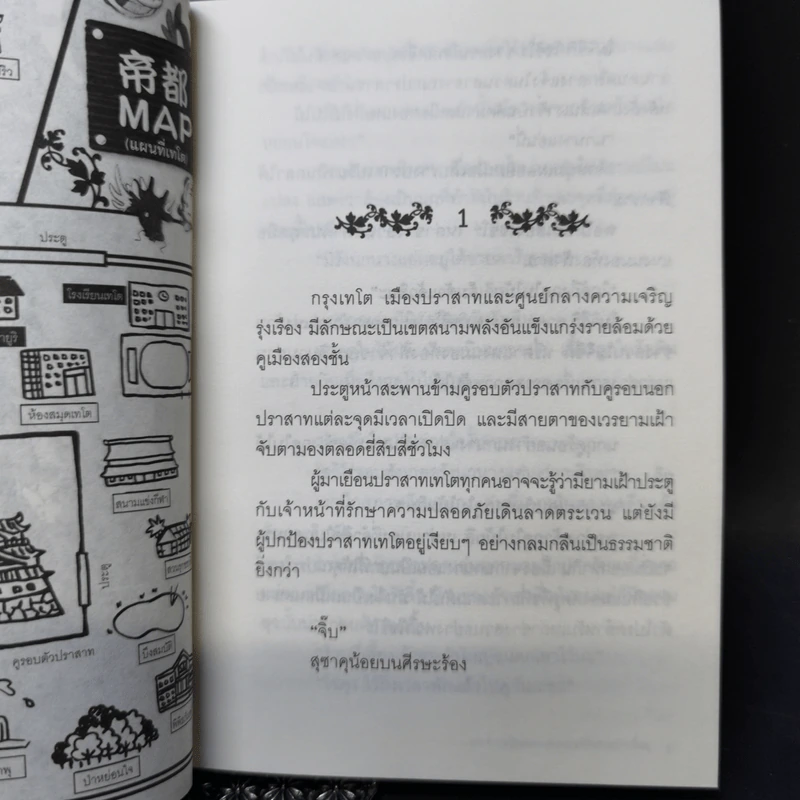 帝都
MAP
(แผนที่เทโต)
ประตู
โรงเรียนเทโต
ห้องสมุดเทโต
สนามแข่งกีฬา
ประตู
คูรอบตัวปราสาท
บึงสมบัติ
ป่าหย่อนใจ
1
กรุงเทโต เมืองปราสาทและศูนย์กลางความเจริญ
รุ่งเรือง มีลักษณะเป็นเขตสนามพลังอันแข็งแกร่งรายล้อมด้วย
คูเมืองสองชั้น
ประตูหน้าสะพานข้ามคูรอบตัวปราสาทกับคูรอบนอก
ปราสาทแต่ละจุดมีเวลาเปิดปิด และมีสายตาของเวรยามเฝ้า
จับตามองตลอดยี่สิบสี่ชั่วโมง
ผู้มาเยือนปราสาทเทโตทุกคนอาจจะรู้ว่ามียามเฝ้าประตู
กับเจ้าหน้าที่รักษาความปลอดภัยเดินลาดตระเวน แต่ยังมี
ผู้ปกป้องปราสาทเทโตอยู่เงียบๆ อย่างกลมกลืนเป็นธรรมชาติ
ยิ่งกว่า
“จิ๊บ”
สุซาคุน้อยบนศีรษะร้อง